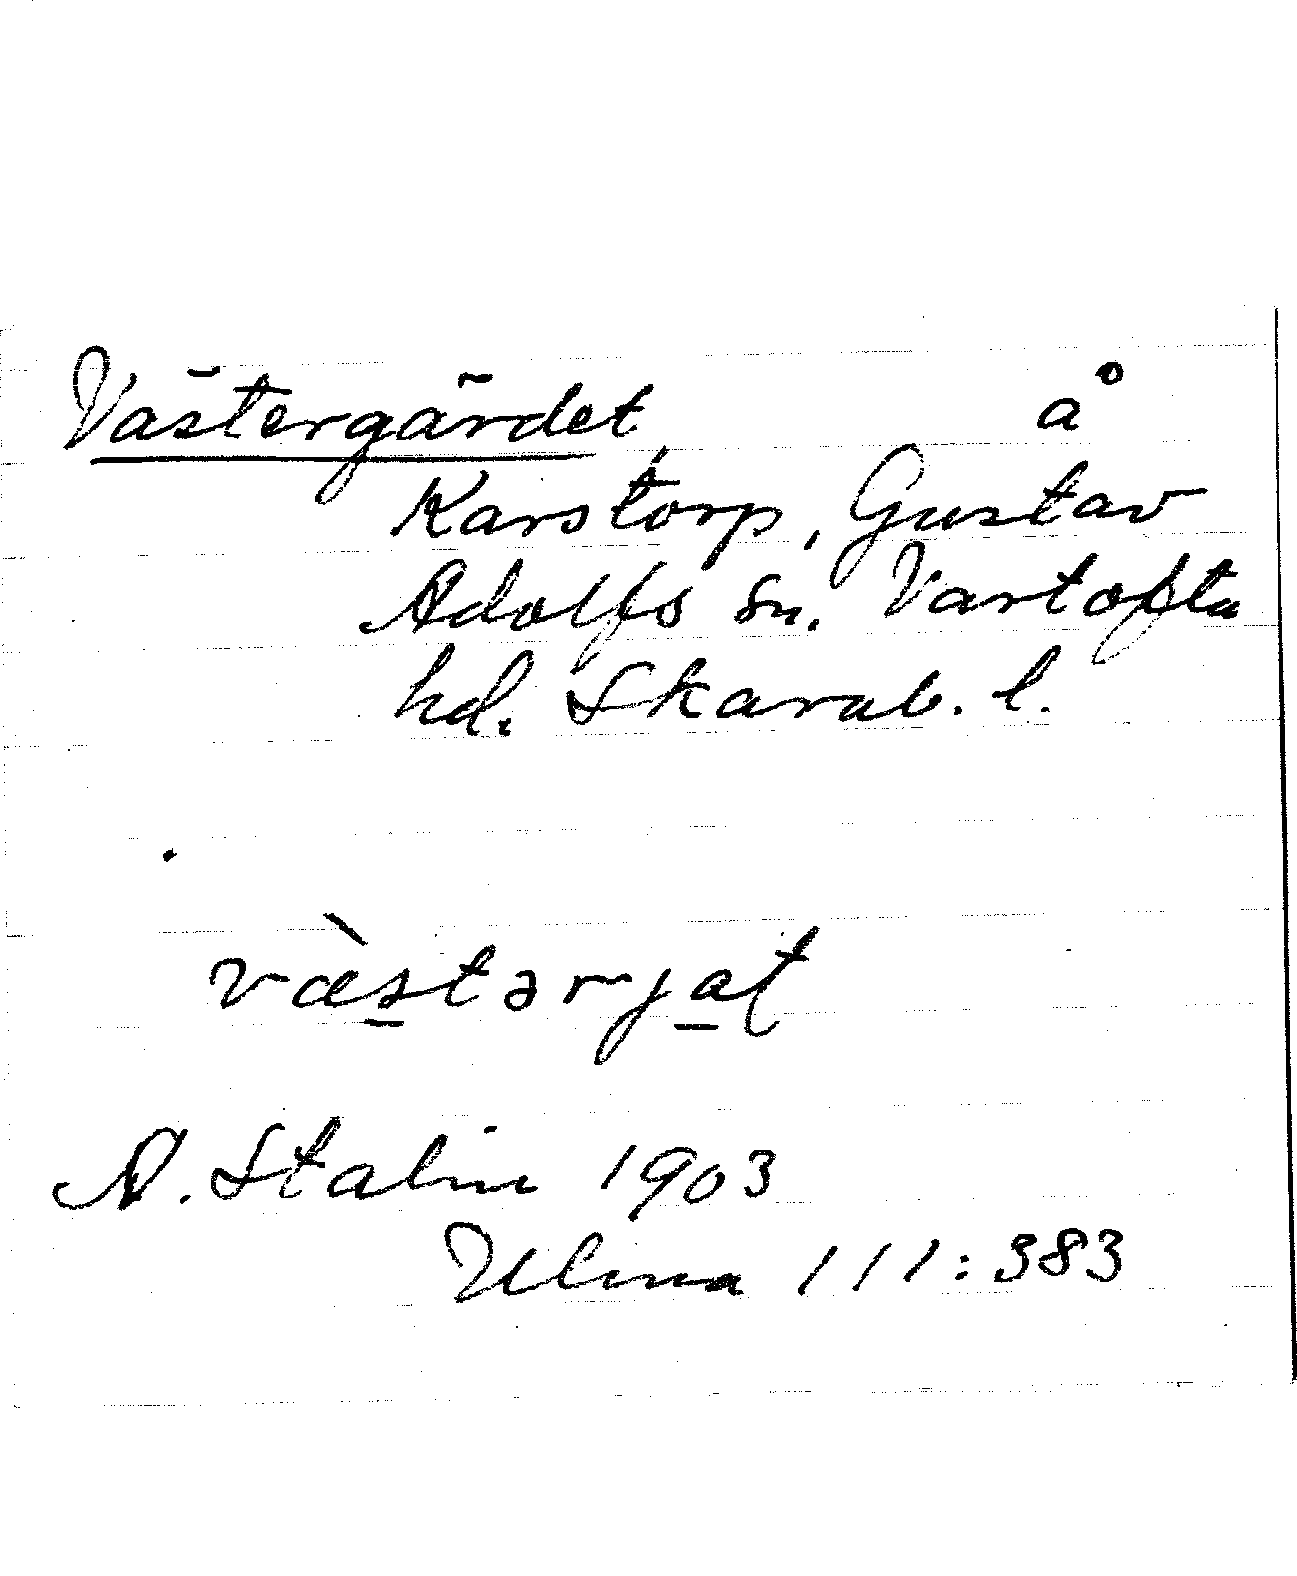 Västergärdet å
Karstorp, Gustav
Adolfs sn. Vartofta
hd. Skarab. l.
væ̀stərjat
A. Stalin 1903
Ulma 111:383